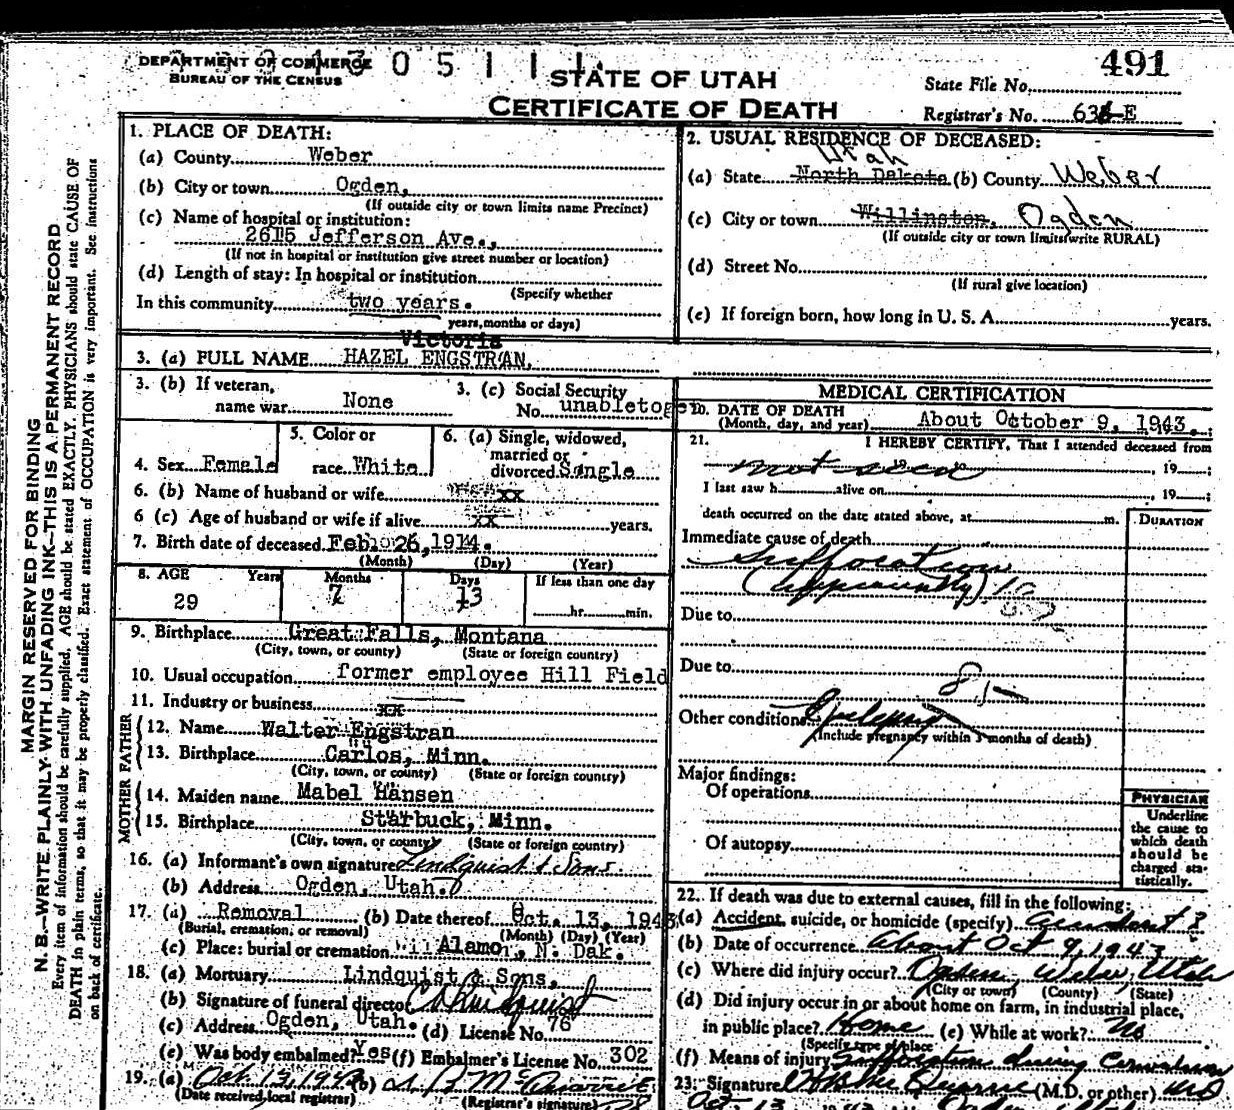 DEPARTMENT OF COMMERCE
BUREAU OF THE CENSUS
STATE OF UTAH
CERTIFICATE OF DEATH
491
State File No.
Registrar's No. 63 -E
1. PLACE OF DEATH:
(a) County Weber
(b) City or town Ogden,
(If outside city or town limits name Precinct)
(c) Name of hospital or institution:
2615 Jefferson Ave.,
(If not in hospital or institution give street number or location)
(d) Length of stay: In hospital or institution
(Specify whether
In this community two years.
years, months or days)
2. USUAL RESIDENCE OF DECEASED:
Utah
(a) State North Dakota (b) County Weber
(c) City or town Williston, Ogden
(If outside city or town limits write RURAL)
(d) Street No.
(If rural give location)
(e) If foreign born, how long in U. S. A. years.
Victoria
3. (a) FULL NAME HAZEL ENGSTRAN,
3. (b) If veteran,
name war None
3. (c) Social Security
No. unabletoget
4. Sex Female
5. Color or
race White
6. (a) Single, widowed,
married or
divorced Single
6. (b) Name of husband or wife xx
6 (c) Age of husband or wife if alive xx years.
7. Birth date of deceased Feb. 26, 1914.
(Month) (Day) (Year)
8. AGE Years Months Days If less than one day
29 7 13 hr. min.
9. Birthplace Great Falls, Montana
(City, town, or county) (State or foreign country)
10. Usual occupation former employee Hill Field
11. Industry or business xx
FATHER
12. Name Walter Engstran
13. Birthplace Carlos, Minn.
(City, town, or county) (State or foreign country)
MOTHER
14. Maiden name Mabel Hansen
15. Birthplace Starbuck, Minn.
(City, town, or county) (State or foreign country)
16. (a) Informant's own signature Lindquist & Sons.
(b) Address Ogden, Utah.
17. (a) Removal (b) Date thereof Oct. 13, 1943
(Burial, cremation, or removal) (Month) (Day) (Year)
(c) Place: burial or cremation Alamo, N. Dak.
18. (a) Mortuary Lindquist & Sons,
(b) Signature of funeral director Lindquist
(c) Address Ogden, Utah. (d) License No. 76
(e) Was body embalmed? Yes (f) Embalmer's License No. 302
19. (a) Oct 13, 1943 (b)
(Date received local registrar) (Registrar's signature)
MEDICAL CERTIFICATION
20. DATE OF DEATH
(Month, day, and year) About October 9, 1943.
21. I HEREBY CERTIFY, That I attended deceased from
not seen , 19 ;
I last saw h alive on , 19 ;
death occurred on the date stated above, at m.
DURATION
Immediate cause of death
Suffocation
(apparently)
Due to
Due to
85
Other conditions Epilepsy
(Include pregnancy within 3 months of death)
Major findings:
Of operations
Of autopsy
PHYSICIAN
Underline
the cause to
which death
should be
charged sta-
tistically.
22. If death was due to external causes, fill in the following:
(a) Accident, suicide, or homicide (specify) accident?
(b) Date of occurrence About Oct 9, 1943
(c) Where did injury occur? Ogden Weber, Utah
(City or town) (County) (State)
(d) Did injury occur in or about home on farm, in industrial place,
in public place? Home (e) While at work? No
(Specify type of place
(f) Means of injury Suffocation during Convulsion
23. Signature (M.D. or other) MD
Oct. 13
MARGIN RESERVED FOR BINDING
N. B.—WRITE PLAINLY WITH UNFADING INK—THIS IS A PERMANENT RECORD
Every item of information should be carefully supplied. AGE should be stated EXACTLY. PHYSICIANS should state CAUSE OF
DEATH in plain terms, so that it may be properly classified. Exact statement of OCCUPATION is very important. See instructions
on back of certificate.